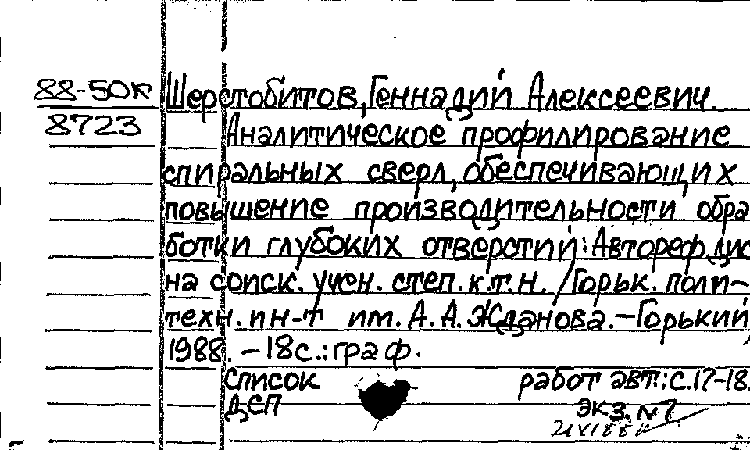 88-50к Шерстобитов, Геннадий Алексеевич.
8723 Аналитическое профилирование
спиральных сверл, обеспечивающих
повышение производительности обра
ботки глубоких отверстий: Автореф. дис
на соиск. учен. степ. к.т.н. / Горьк. поли-
техн. ин-т им. А. А. Жданова. - Горький,
1988. - 18 с.: граф.
Список работ авт.: с. 17-18.
ДСП экз. №7